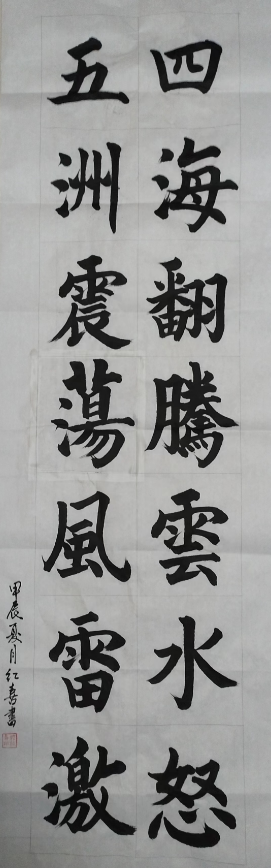 四海翻騰雲水怒
五洲震蕩風雷激
甲辰夏月红喜書